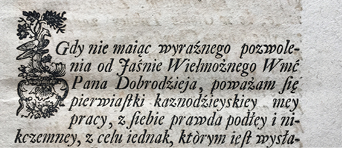 Gdy nie maiąc wyraźnego pozwole-
nia od Jaśnie Wielmożnego Wmć
Pana Dobrodźieja, poważam się
pierwiastki kaznodźieyskiey mey
pracy, z siebie prawda podłey i ni-
kczemney, z celu iednak, którym iest wysła-